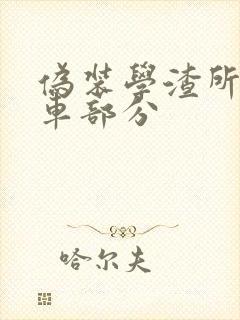 偽裝學渣所
車部分
哈尔夫